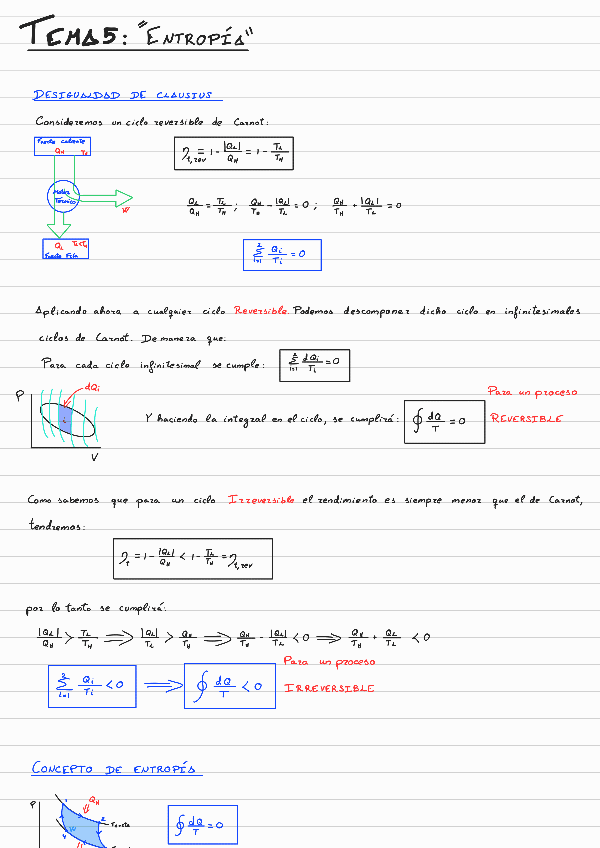 TEMA 5: "ENTROPÍA"
DESIGUALDAD DE CLAUSIUS
Consideremos un ciclo reversible de Carnot:
Fuente caliente
Q_H T_H
Motor
Térmico
W
Q_L
Fuente Fría
η_t,rev = 1 - |Q_L|/Q_H = 1 - T_L/T_H
Q_L/Q_H = T_L/T_H ; Q_H/T_H - |Q_L|/T_L = 0 ; Q_H/T_H + |Q_L|/T_L = 0
∑_{i=1}^{2} Q_i/T_i = 0
Aplicando ahora a cualquier ciclo Reversible. Podemos descomponer dicho ciclo en infinitesimales
ciclos de Carnot. De manera que:
Para cada ciclo infinitesimal se cumple: ∑_{i=1}^{2} dQ_i/T_i = 0
P
dQ_i
i
V
Y haciendo la integral en el ciclo, se cumplirá: ∮ dQ/T = 0
Para un proceso
REVERSIBLE
Como sabemos que para un ciclo Irreversible el rendimiento es siempre menor que el de Carnot,
tendremos:
η_t = 1 - |Q_L|/Q_H < 1 - T_L/T_H = η_t,rev
por lo tanto se cumplirá:
|Q_L|/Q_H > T_L/T_H ⟹ |Q_L|/T_L > Q_H/T_H ⟹ Q_H/T_H - |Q_L|/T_L < 0 ⟹ Q_H/T_H + Q_L/T_L < 0
∑_{i=1}^{2} Q_i/T_i < 0 ⟹ ∮ dQ/T < 0
Para un proceso
IRREVERSIBLE
CONCEPTO DE ENTROPÍA
P
1
Q_H
2
T=cte
4
W
∮ dQ/T = 0